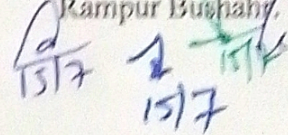 Rampur Bushahr.
15/7 15/7
15/7